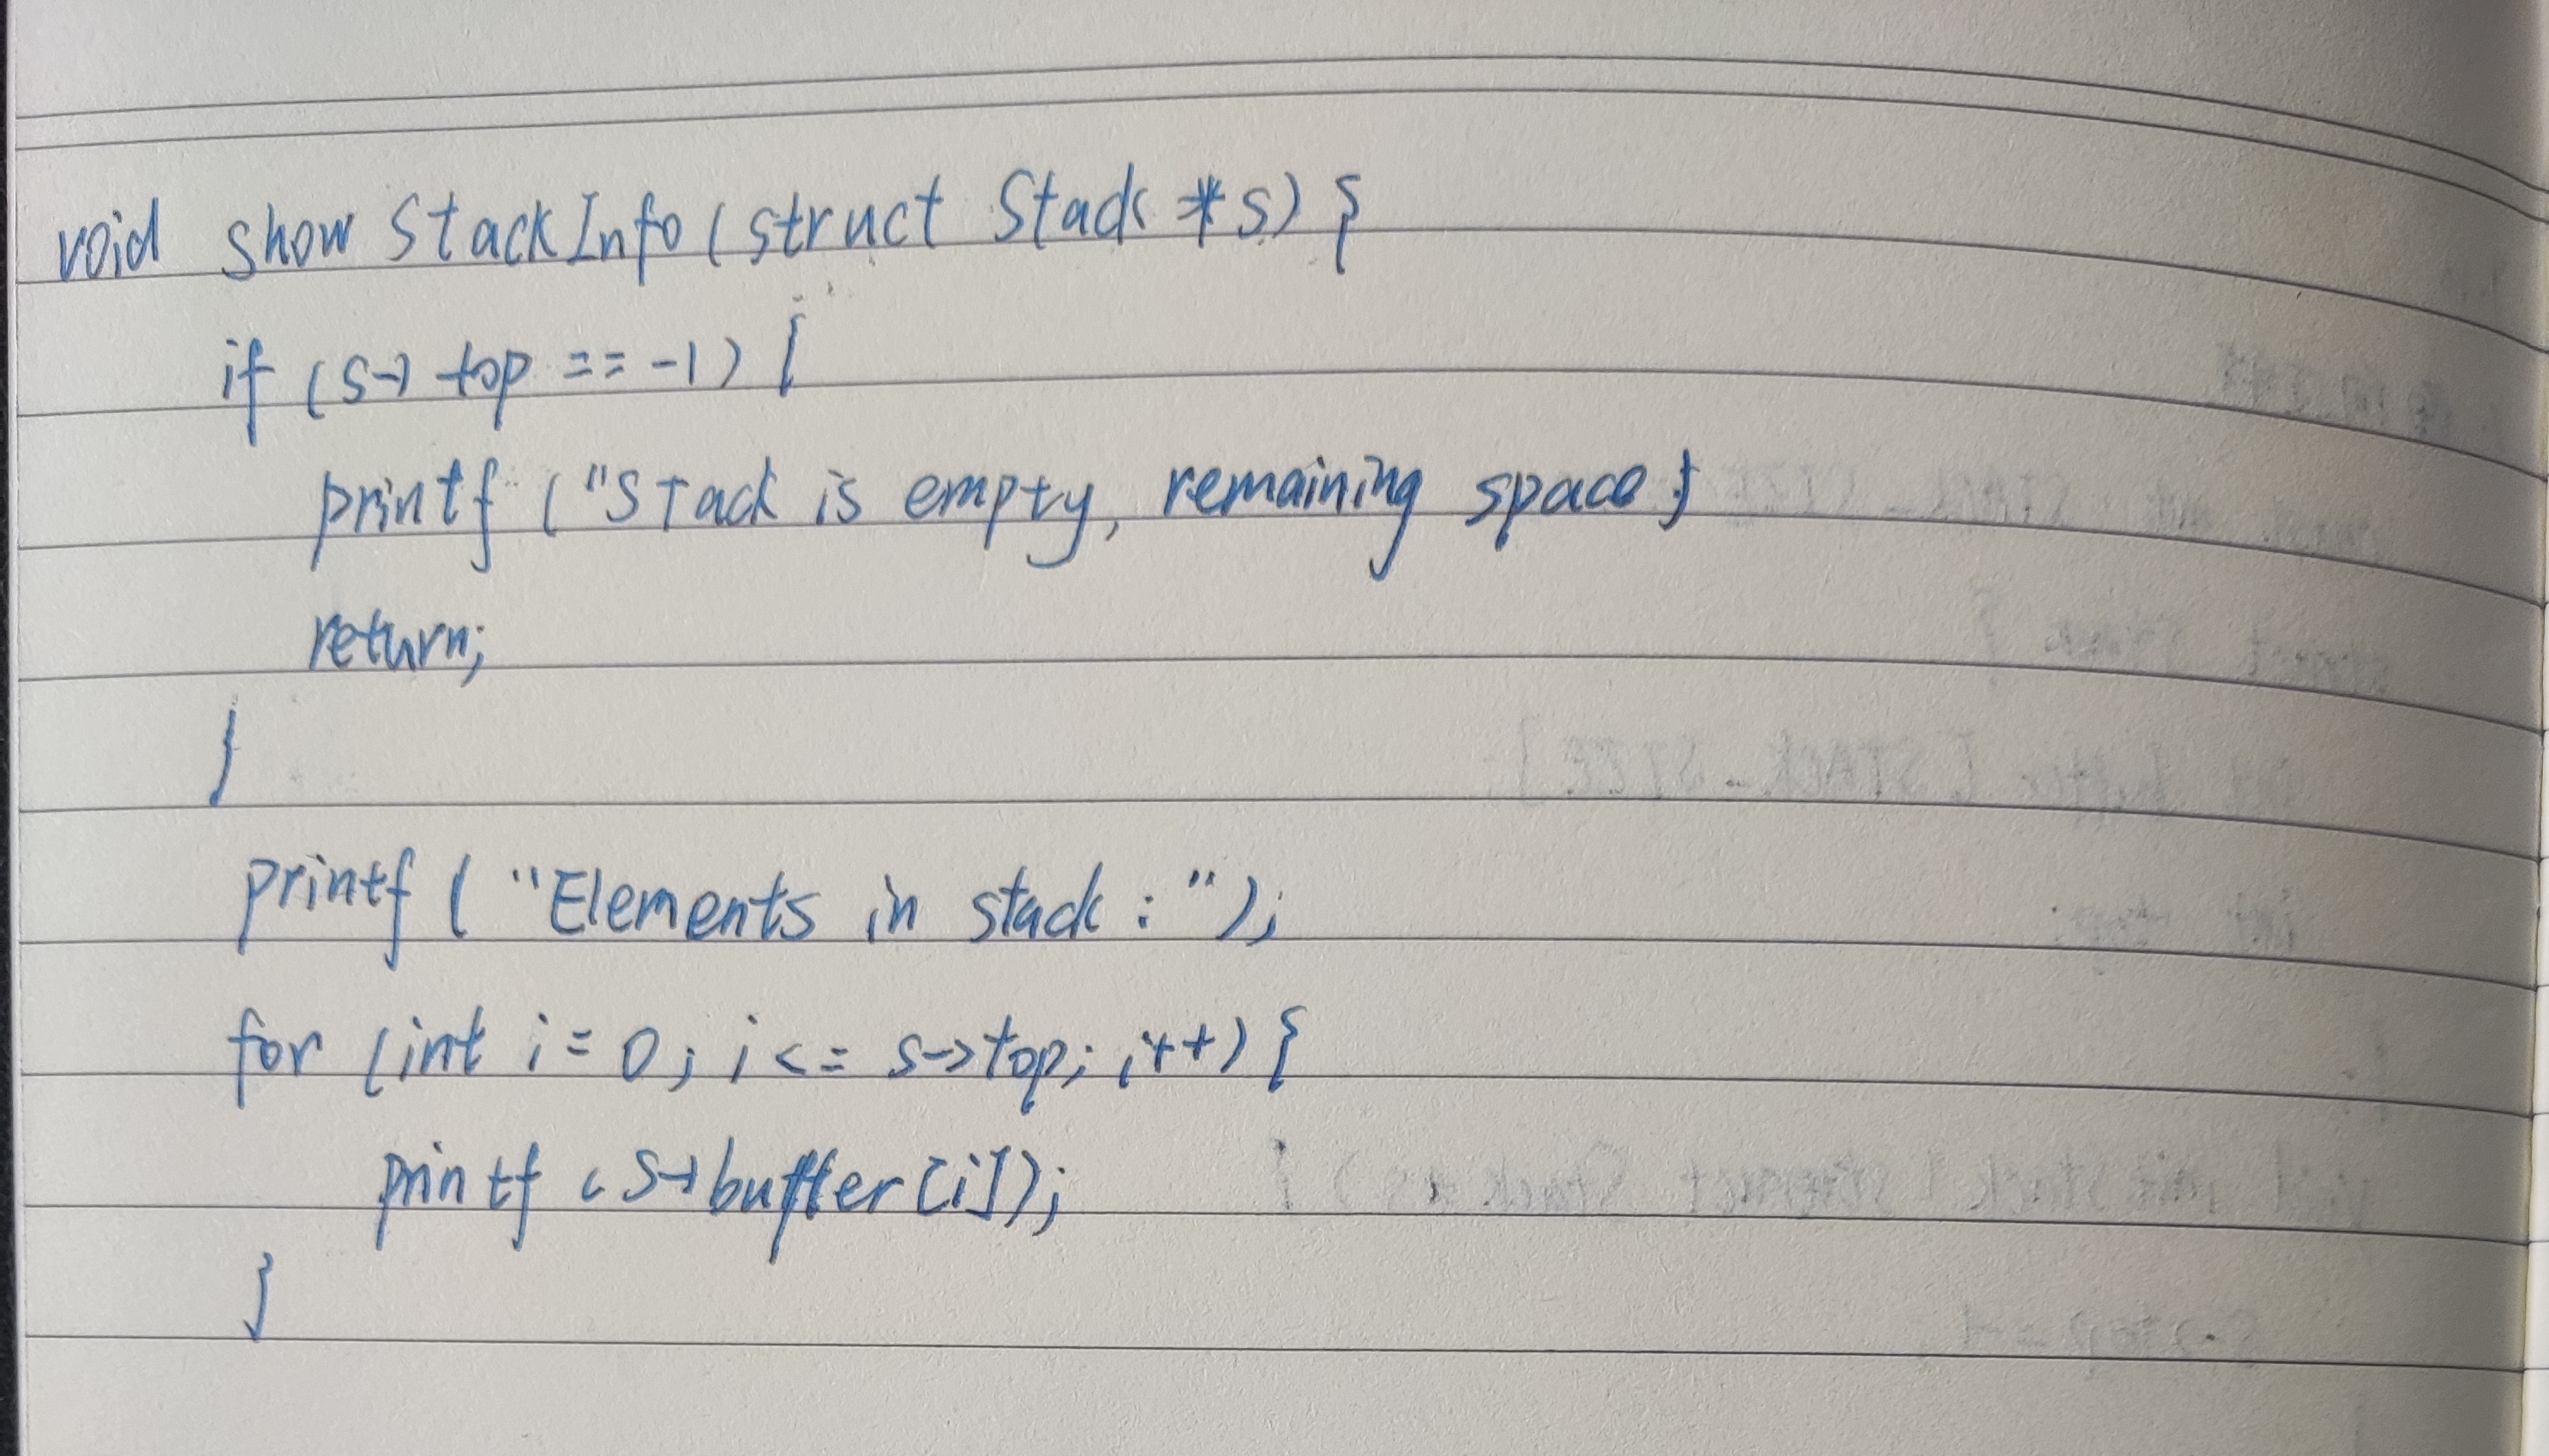 void showStackInfo(struct Stack *s) {
if (s-> top == -1) {
printf ("Stack is empty, remaining space }
return;
}
printf ( "Elements in stack : ");
for (int i = 0; i <= s->top; i++) {
printf (s->buffer[i]);
}